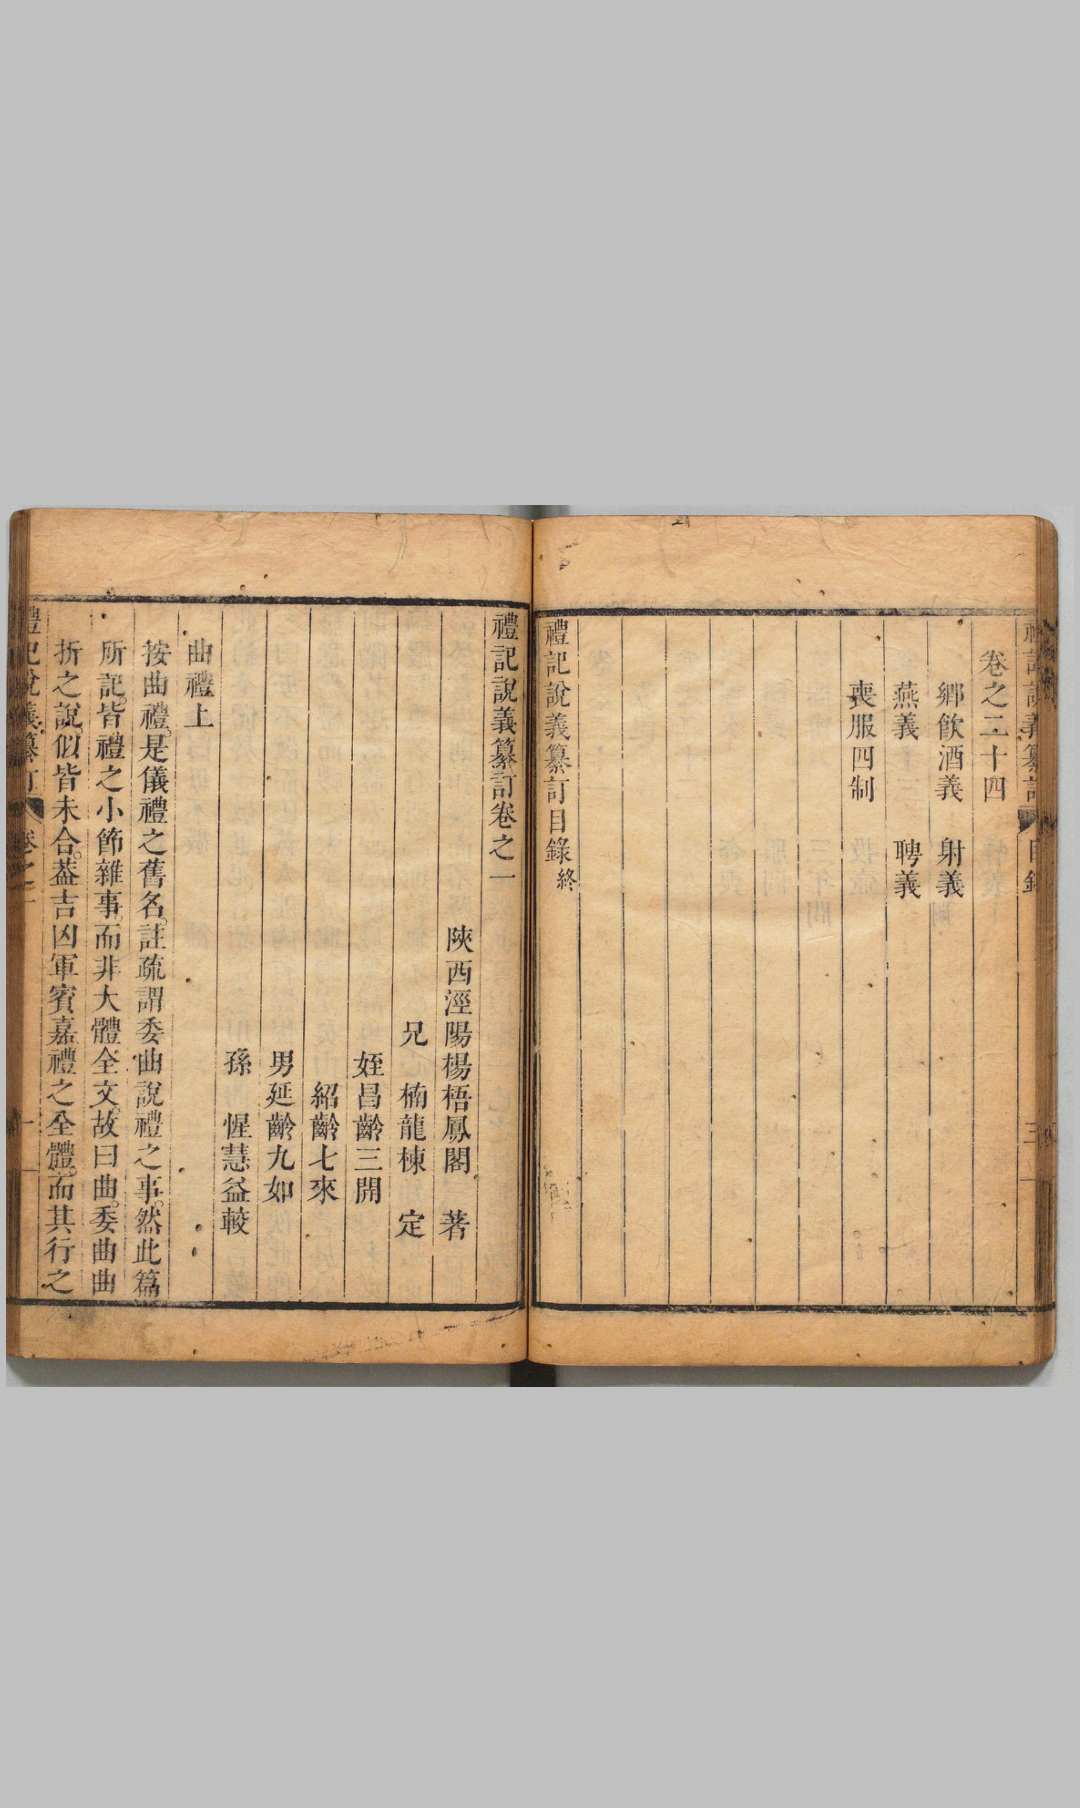 卷之二十四
鄉飲酒義 射義
燕義 聘義
喪服四制
禮記說義纂訂目錄終
三
禮記說義纂訂卷之一
陝西涇陽楊梧鳳閣 著
兄 楠龍棟 定
姪昌齡三開
紹齡七來
男延齡九如
孫 惺慧益較
曲禮上
按曲禮。是儀禮之舊名。註疏謂委曲說禮之事。然此篇
所記。皆禮之小節雜事。而非大體全文。故曰曲。委曲曲
折之說。似皆未合。蓋吉凶軍賓嘉禮之全體。而其行之
禮記說義纂訂 卷之一 一